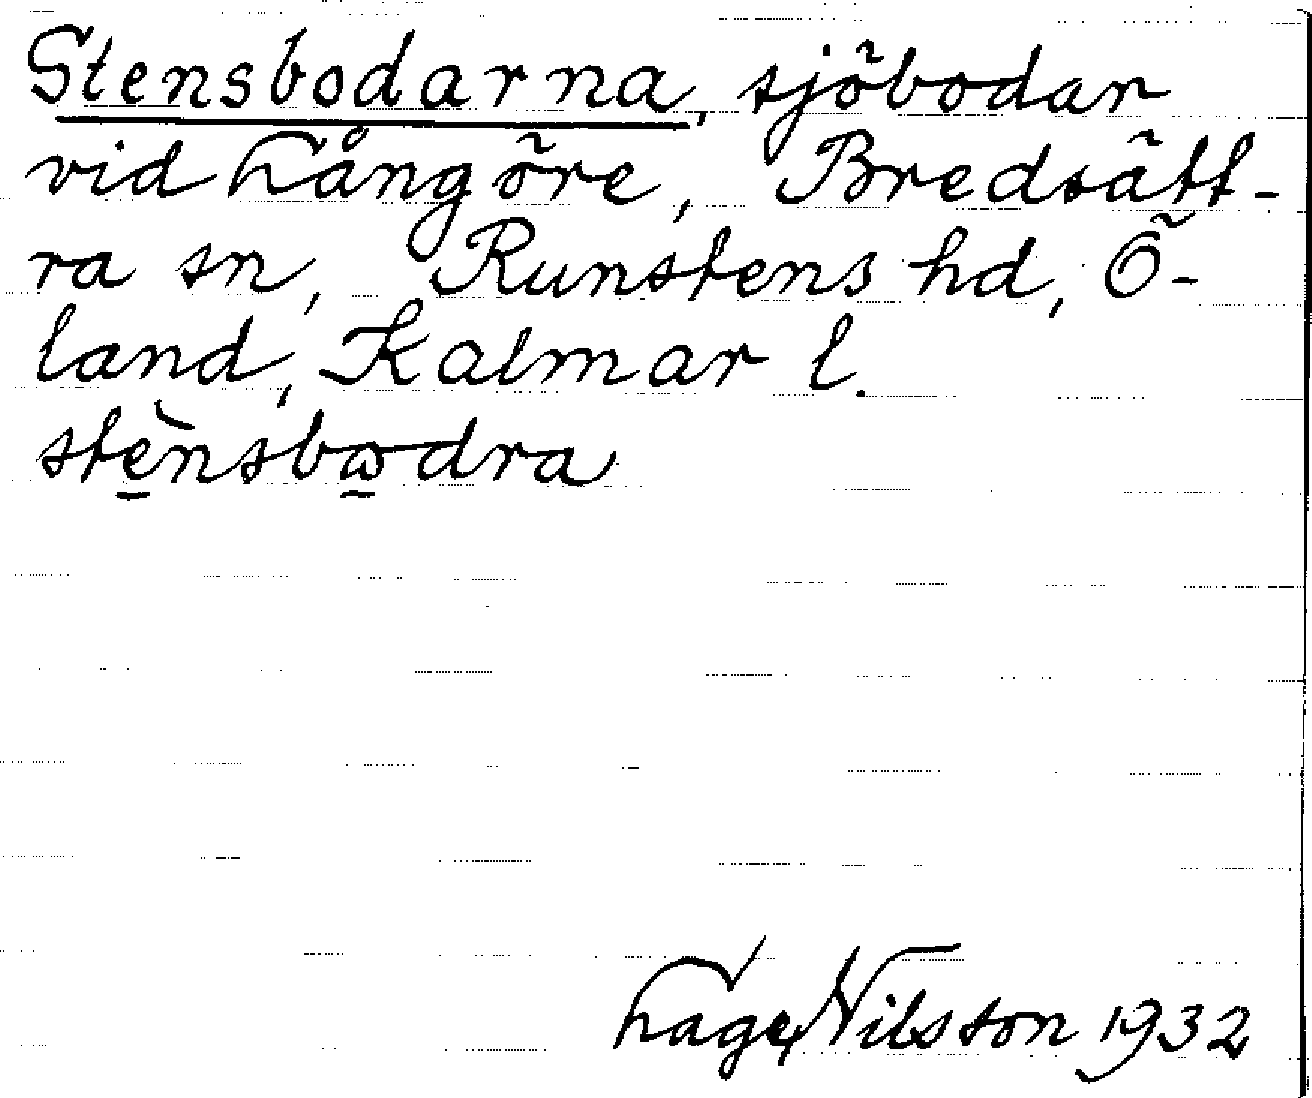 Stensbodarna, sjöbodar
vid Långöre, Bredsätt-
ra sn, Runstens hd, Ö-
land, Kalmar l.
stè̠nsbω̠dra
Lage Nilsson 1932